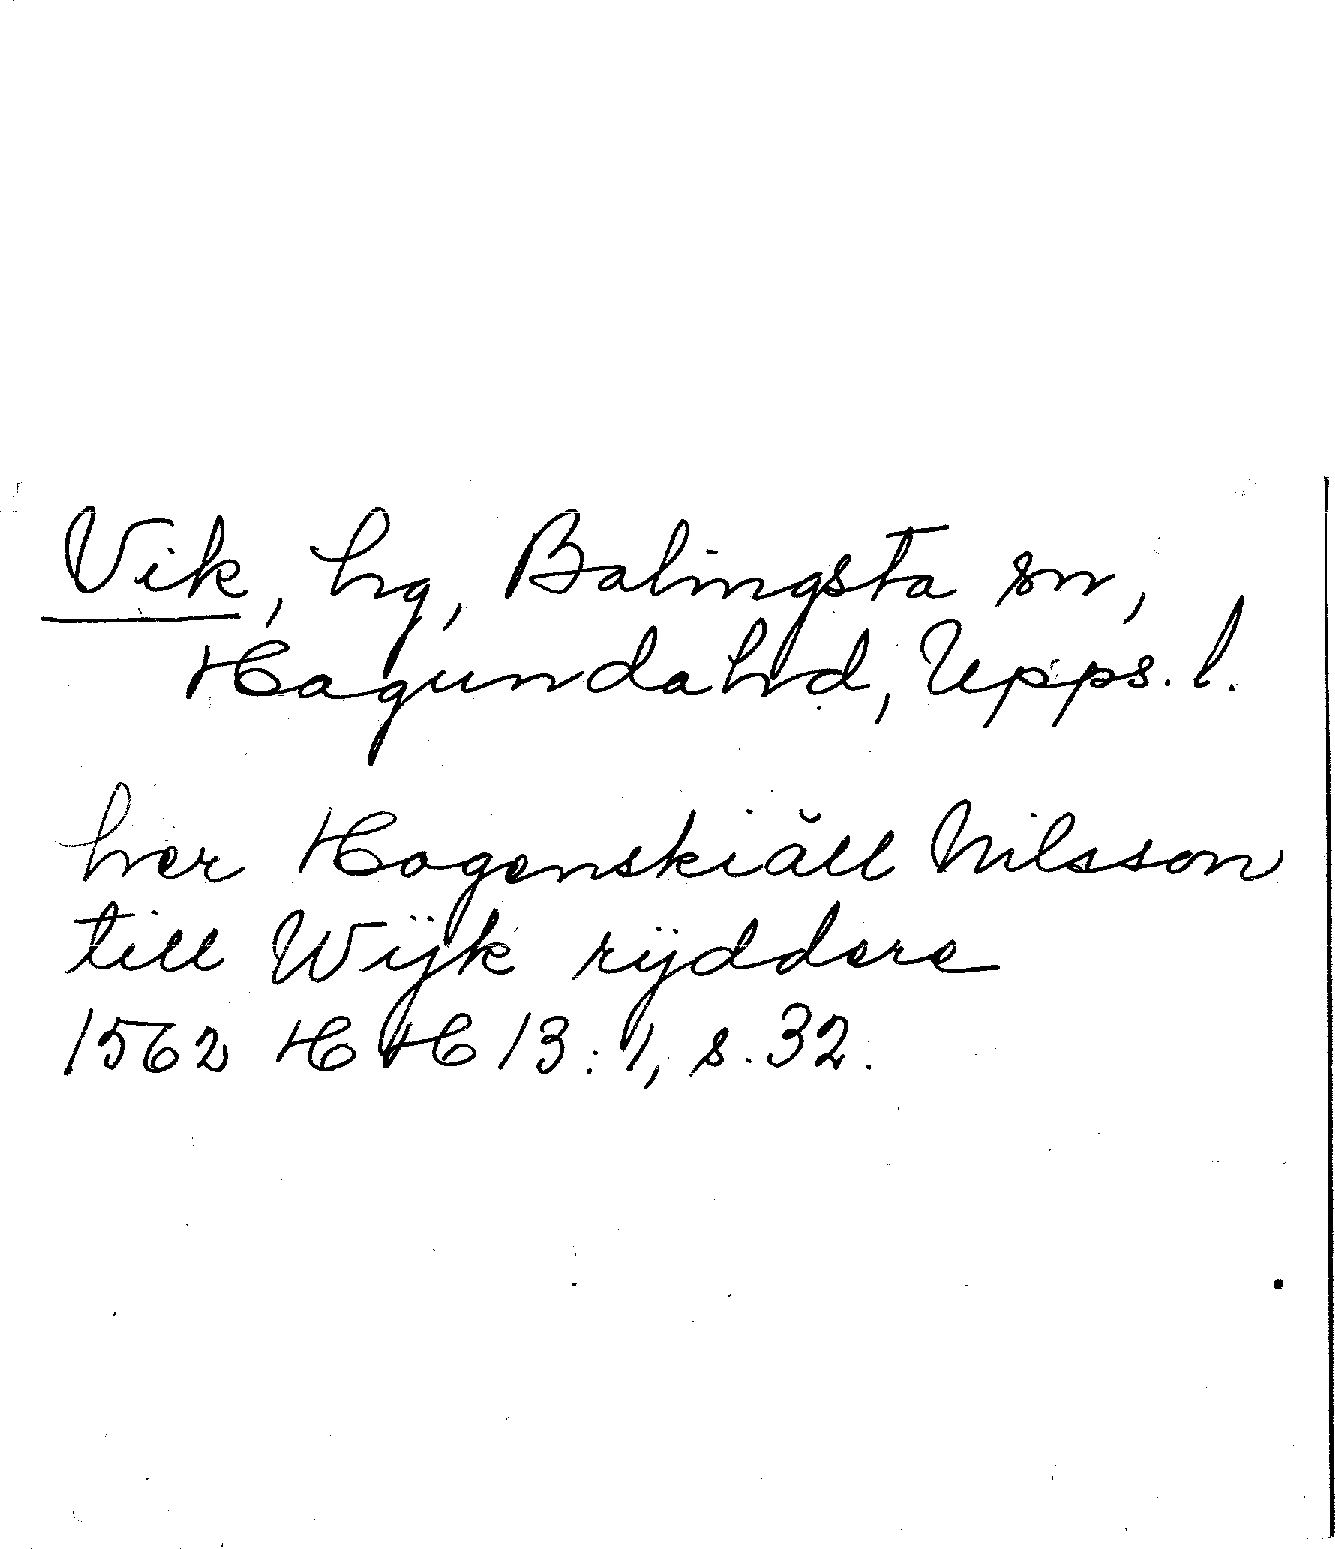 Vik, hg, Balingsta sn,
Hagunda hd, Upps. l.
her Hogenskiăll Nilsson
till Wijk rÿddere
1562 HH 13:1, s. 32.